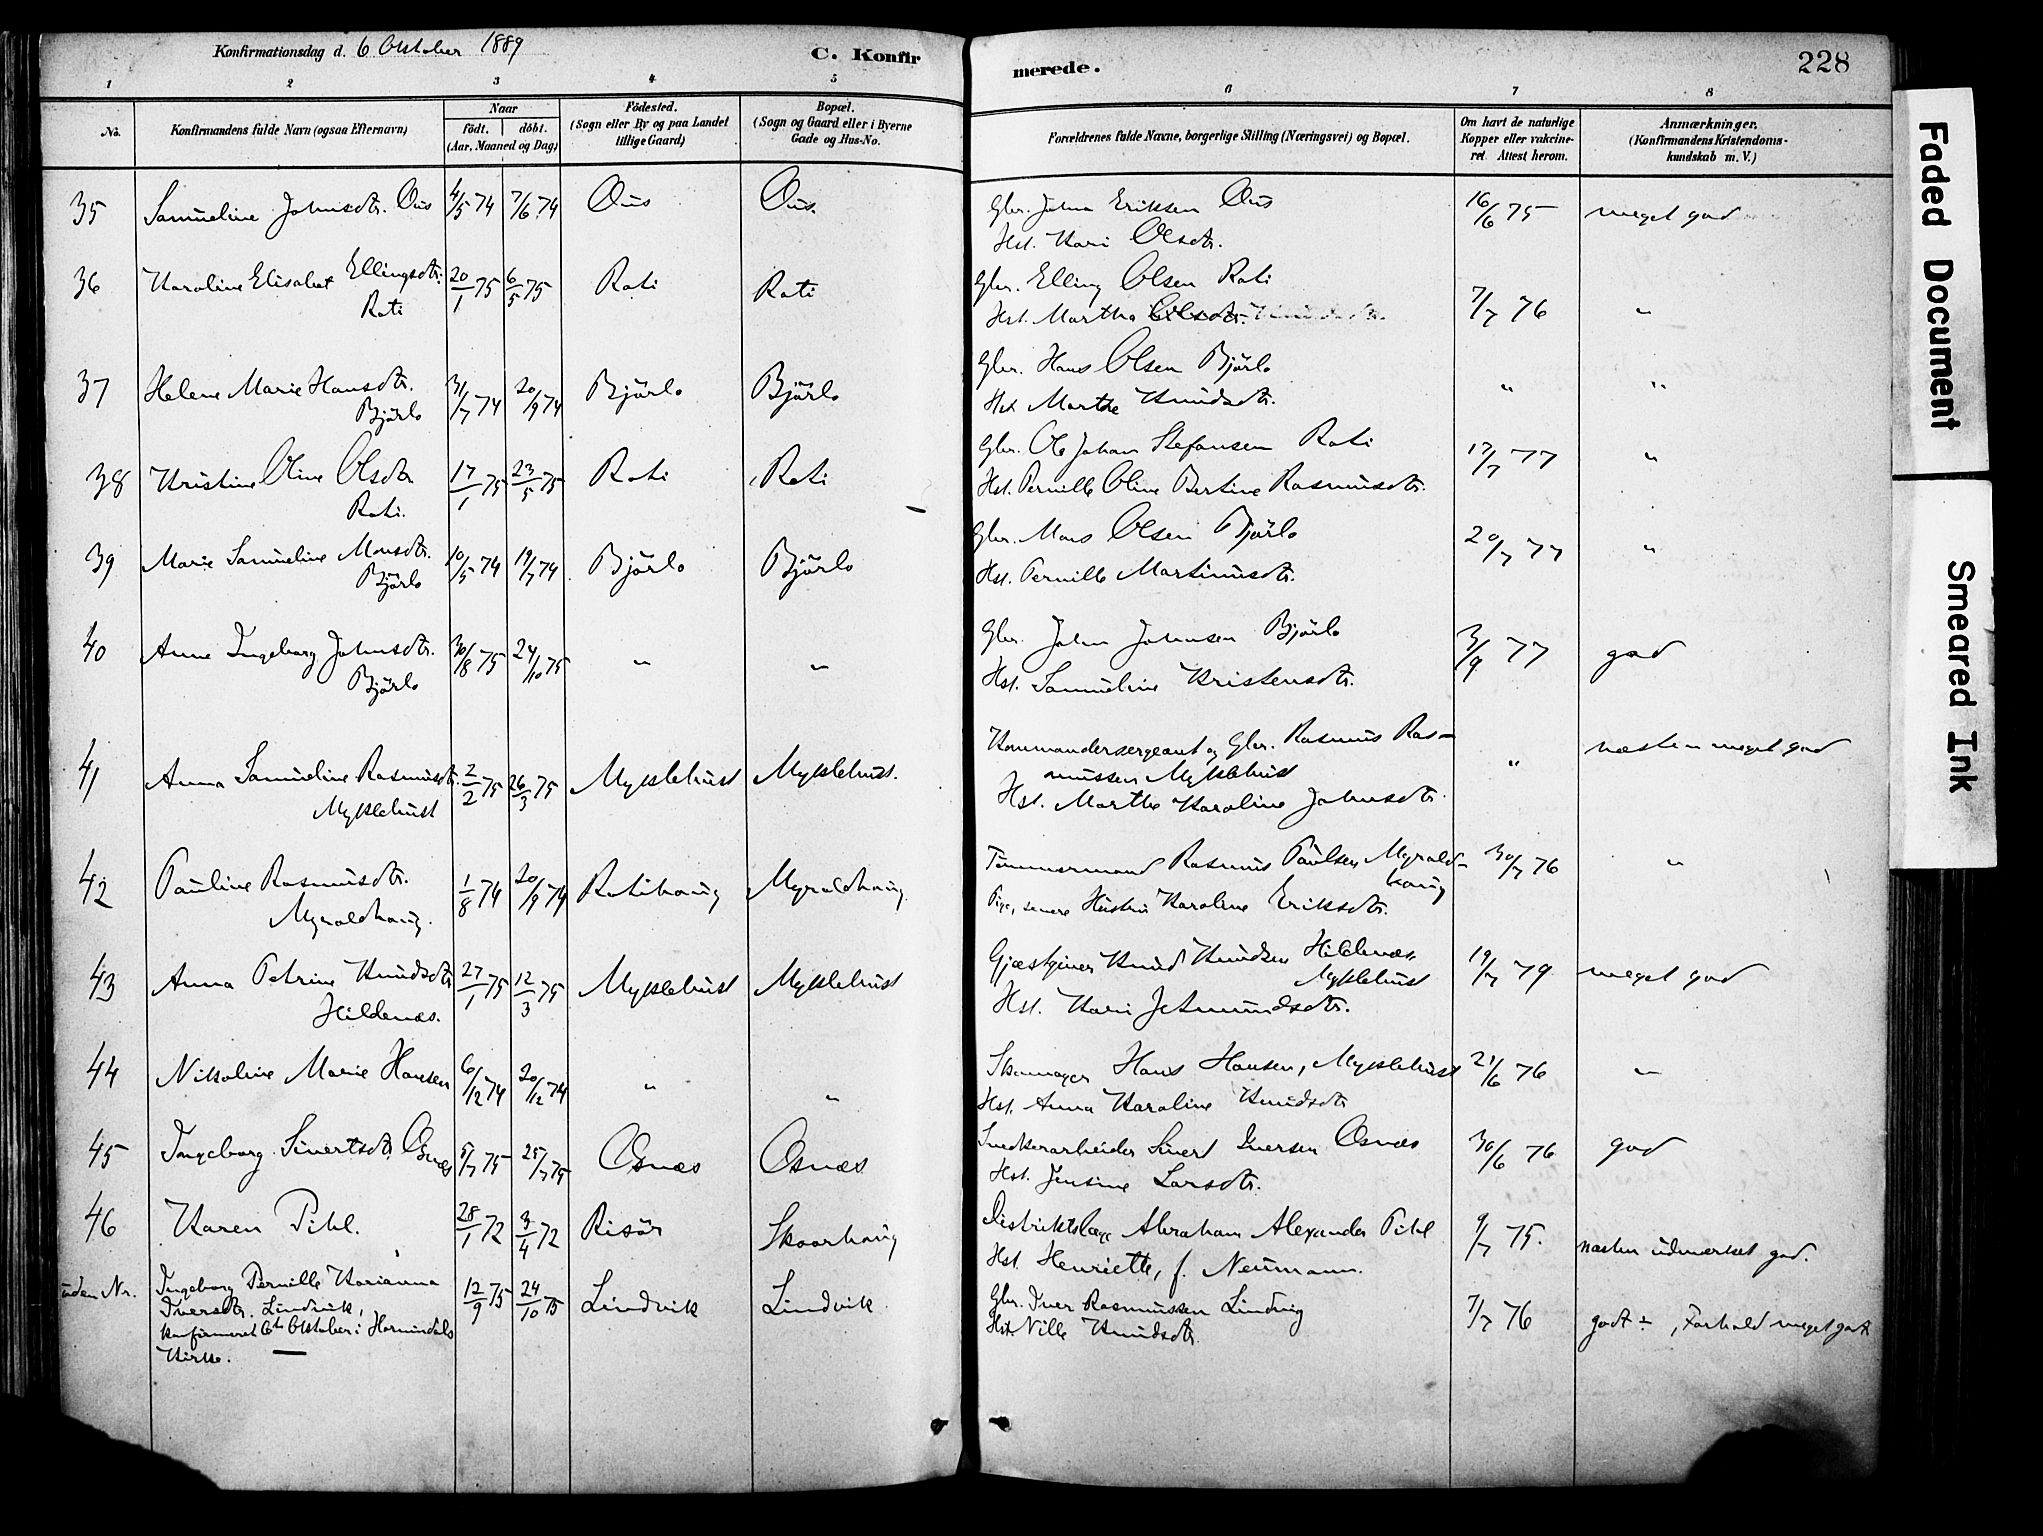 Konfirmationsdag d. 6 Oktober 1889
C. Konfir
merede.
228
1 2 3 4 5 6 7 8
No.
Konfirmandens fulde Navn (ogsaa Efternavn)
Naar
födt. döbt.
(Aar, Maaned og Dag)
Födested.
(Sogn eller By og paa Landet
tillige Gaard)
Bopæl.
(Sogn og Gaard eller i Byerne
Gade og Hus-No.
Forældrenes fulde Navne, borgerlige Stilling (Næringsvei) og Bopæl.
Om havt de naturlige
Kopper eller vakcine-
ret Attest herom.
Anmærkninger.
(Konfirmandens Kristendoms-
kundskab m. V.)
35 Samueline Johnsdtr. Ous 4/5 74 7/6 74 Ous Ous. Gbr. John Eriksen Ous 16/6 75 meget god
Hst. Kari Olsdtr.
36 Karoline Elisabet Ellingsdtr. 20/1 75 6/5 75 Roti Roti Gbr. Elling Olsen Roti 7/7 76 "
Roti Hst. Martha Olsdtr.
37 Helene Marie Hansdtr. 31/7 74 20/9 74 Bjørlo Bjørlo Gbr. Hans Olsen Bjørlo " "
Bjørlo Hst. Marthe Knudsdtr.
38 Kristine Oline Olsdtr 17/1 75 23/5 75 Roti Roti Gbr. Ole Johan Stefansen Roti 17/7 77 "
Roti. Hst. Pernille Oline Bertine Rasmusdtr.
39 Marie Samueline Monsdtr. 10/5 74 19/7 74 Bjørlo Bjørlo Gbr. Mons Olsen Bjørlo 20/7 77 "
Bjørlo Hst. Pernille Martinusdtr.
40 Anne Ingeborg Johnsdtr. 30/8 75 24/10 75 " " Gbr. John Johnsen Bjørlo 3/9 77 god
Bjørlo Hst. Samueline Kristensdtr.
41 Anna Samueline Rasmusdtr. 2/2 75 26/3 75 Myklehust Myklebust. Kommandersergeant og Gbr. Rasmus Ras- " næsten meget god
Myklebust mussen Myklebust
Hst. Marthe Karoline Johnsdtr.
42 Pauline Rasmusdtr. 1/8 74 20/9 74 Rotihaug Myroldhaug. Tømmermand Rasmus Paulsen Myrold- 30/7 76 "
Myroldhaug. haug
Pige, senere Hustru Karoline Eriksdtr.
43 Anna Petrine Knudsdtr 27/1 75 12/3 75 Myklebust Myklebust Gjæstgiver Knud Knudsen Hildenæs 19/7 79 meget god
Hildenæs. Myklebust
Hst. Kari Jetmundsdtr.
44 Nikoline Marie Hansen 6/12 74 20/12 74 " " Skomager Hans Hansen, Myklebust 21/6 76 "
Hst. Anna Karoline Knudsdtr
45 Ingeborg Sivertsdtr. Osnæs 5/7 75 25/7 75 Osnæs Osnæs Snedkerarbeider Sivert Iversen Osnæs 30/6 76 god
Hst. Jensine Larsdtr.
46 Karen Pihl. 28/1 72 3/4 72 Risör Skoorhaug Distriktslæge Abraham Alexander Pihl 9/7 75. næsten udmærket god.
Hst. Henriette, f. Neumann.
uden Nr. Ingeborg Pernille Karianna 12/9 75 24/10 75 Lindvik Lindvik Gbr. Iver Rasmussen Lindvig 7/7 76 godt ÷, Forhold meget godt
Iversdtr. Lindvik, Hst. Nille Knudsdtr.
konfirmeret 6te Oktober i Hornindals
Kirke.
Faded Document
Smeared Ink